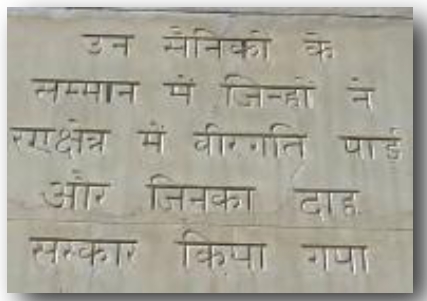 उन सैनिको के
सम्मान में जिन्हों ने
रणक्षेत्र में वीरगति पाई
और जिनका दाह
सस्कार किया गया